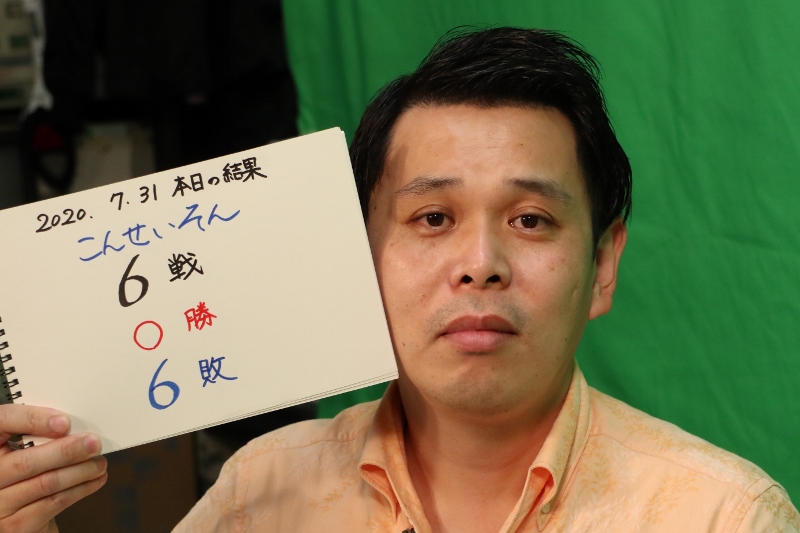 2020. 7.31 本日の結果
こんせいそん
6戦
0勝
6敗